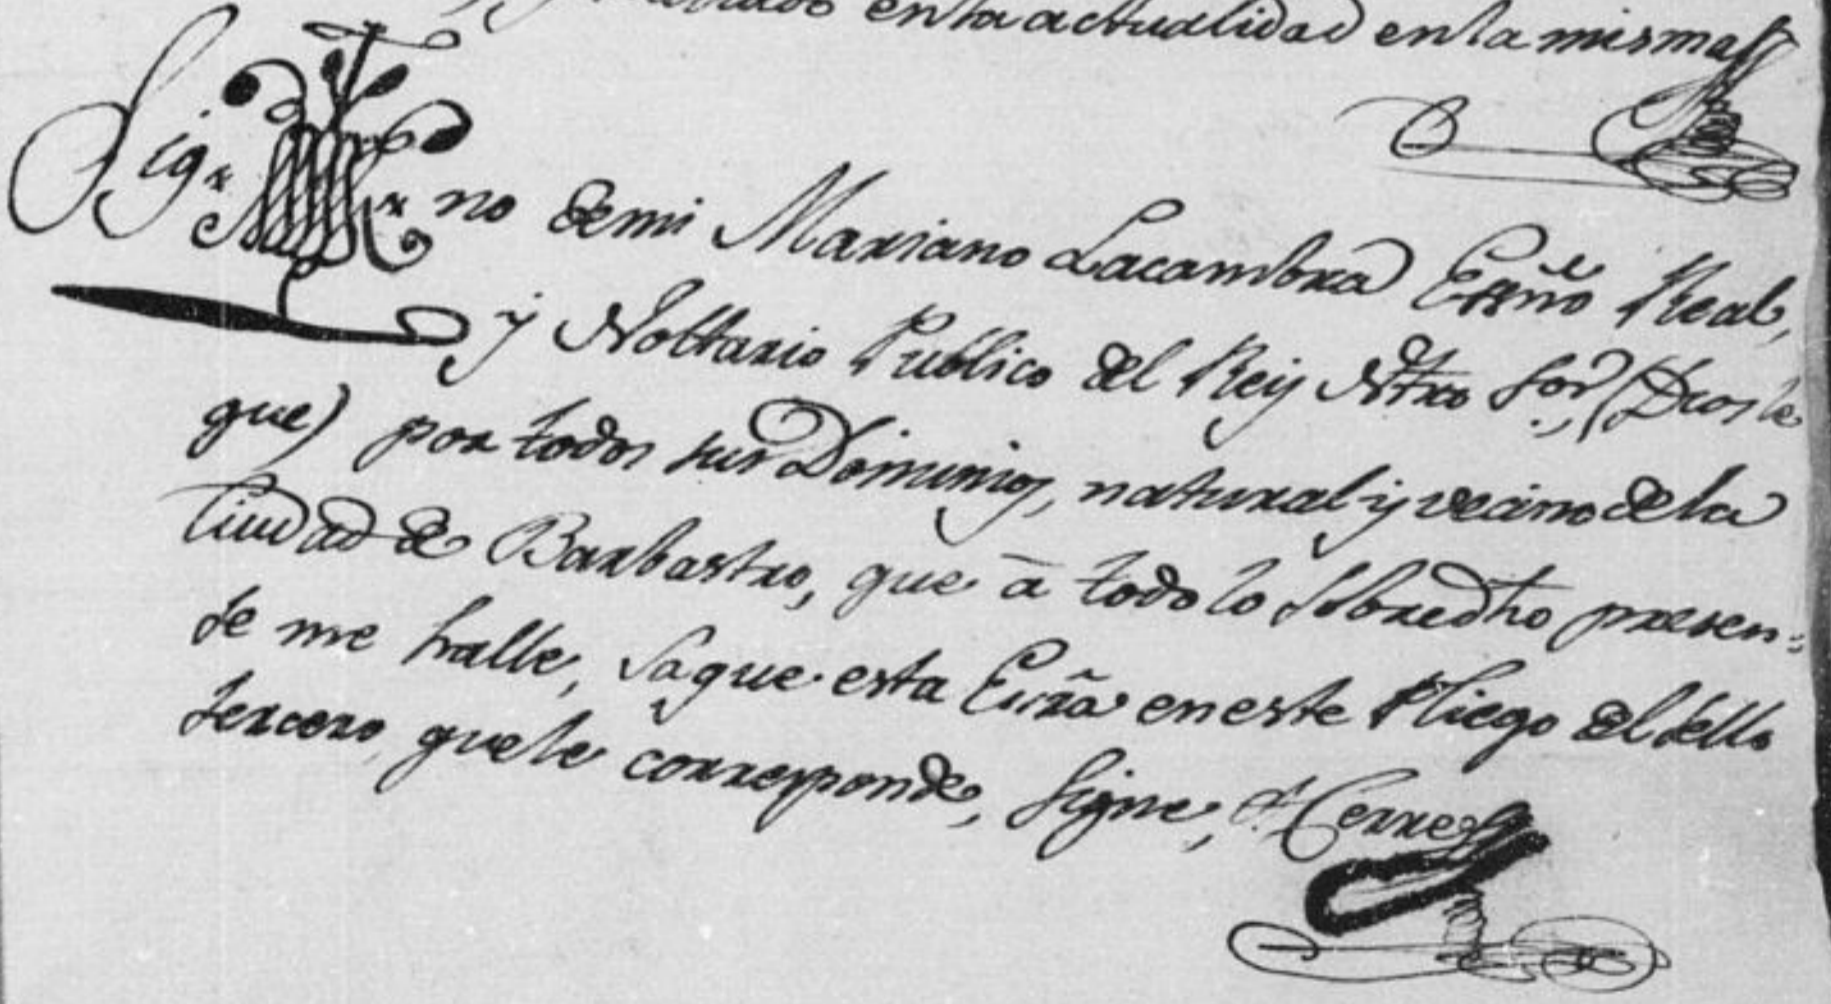 en la actualidad en la misma
Sig no de mi Mariano Lacambra Essno Real,
y Nottario Publico del Rey Ntro Sor, (Dios le
gue) por todos sus Dominios, natural y vecino de la
Ciudad de Barbastro, que à todo lo sobredho presen=
te me halle, Saque esta Escra en este Pliego del Sello
tercero, que le corresponde, signe, et Cerre